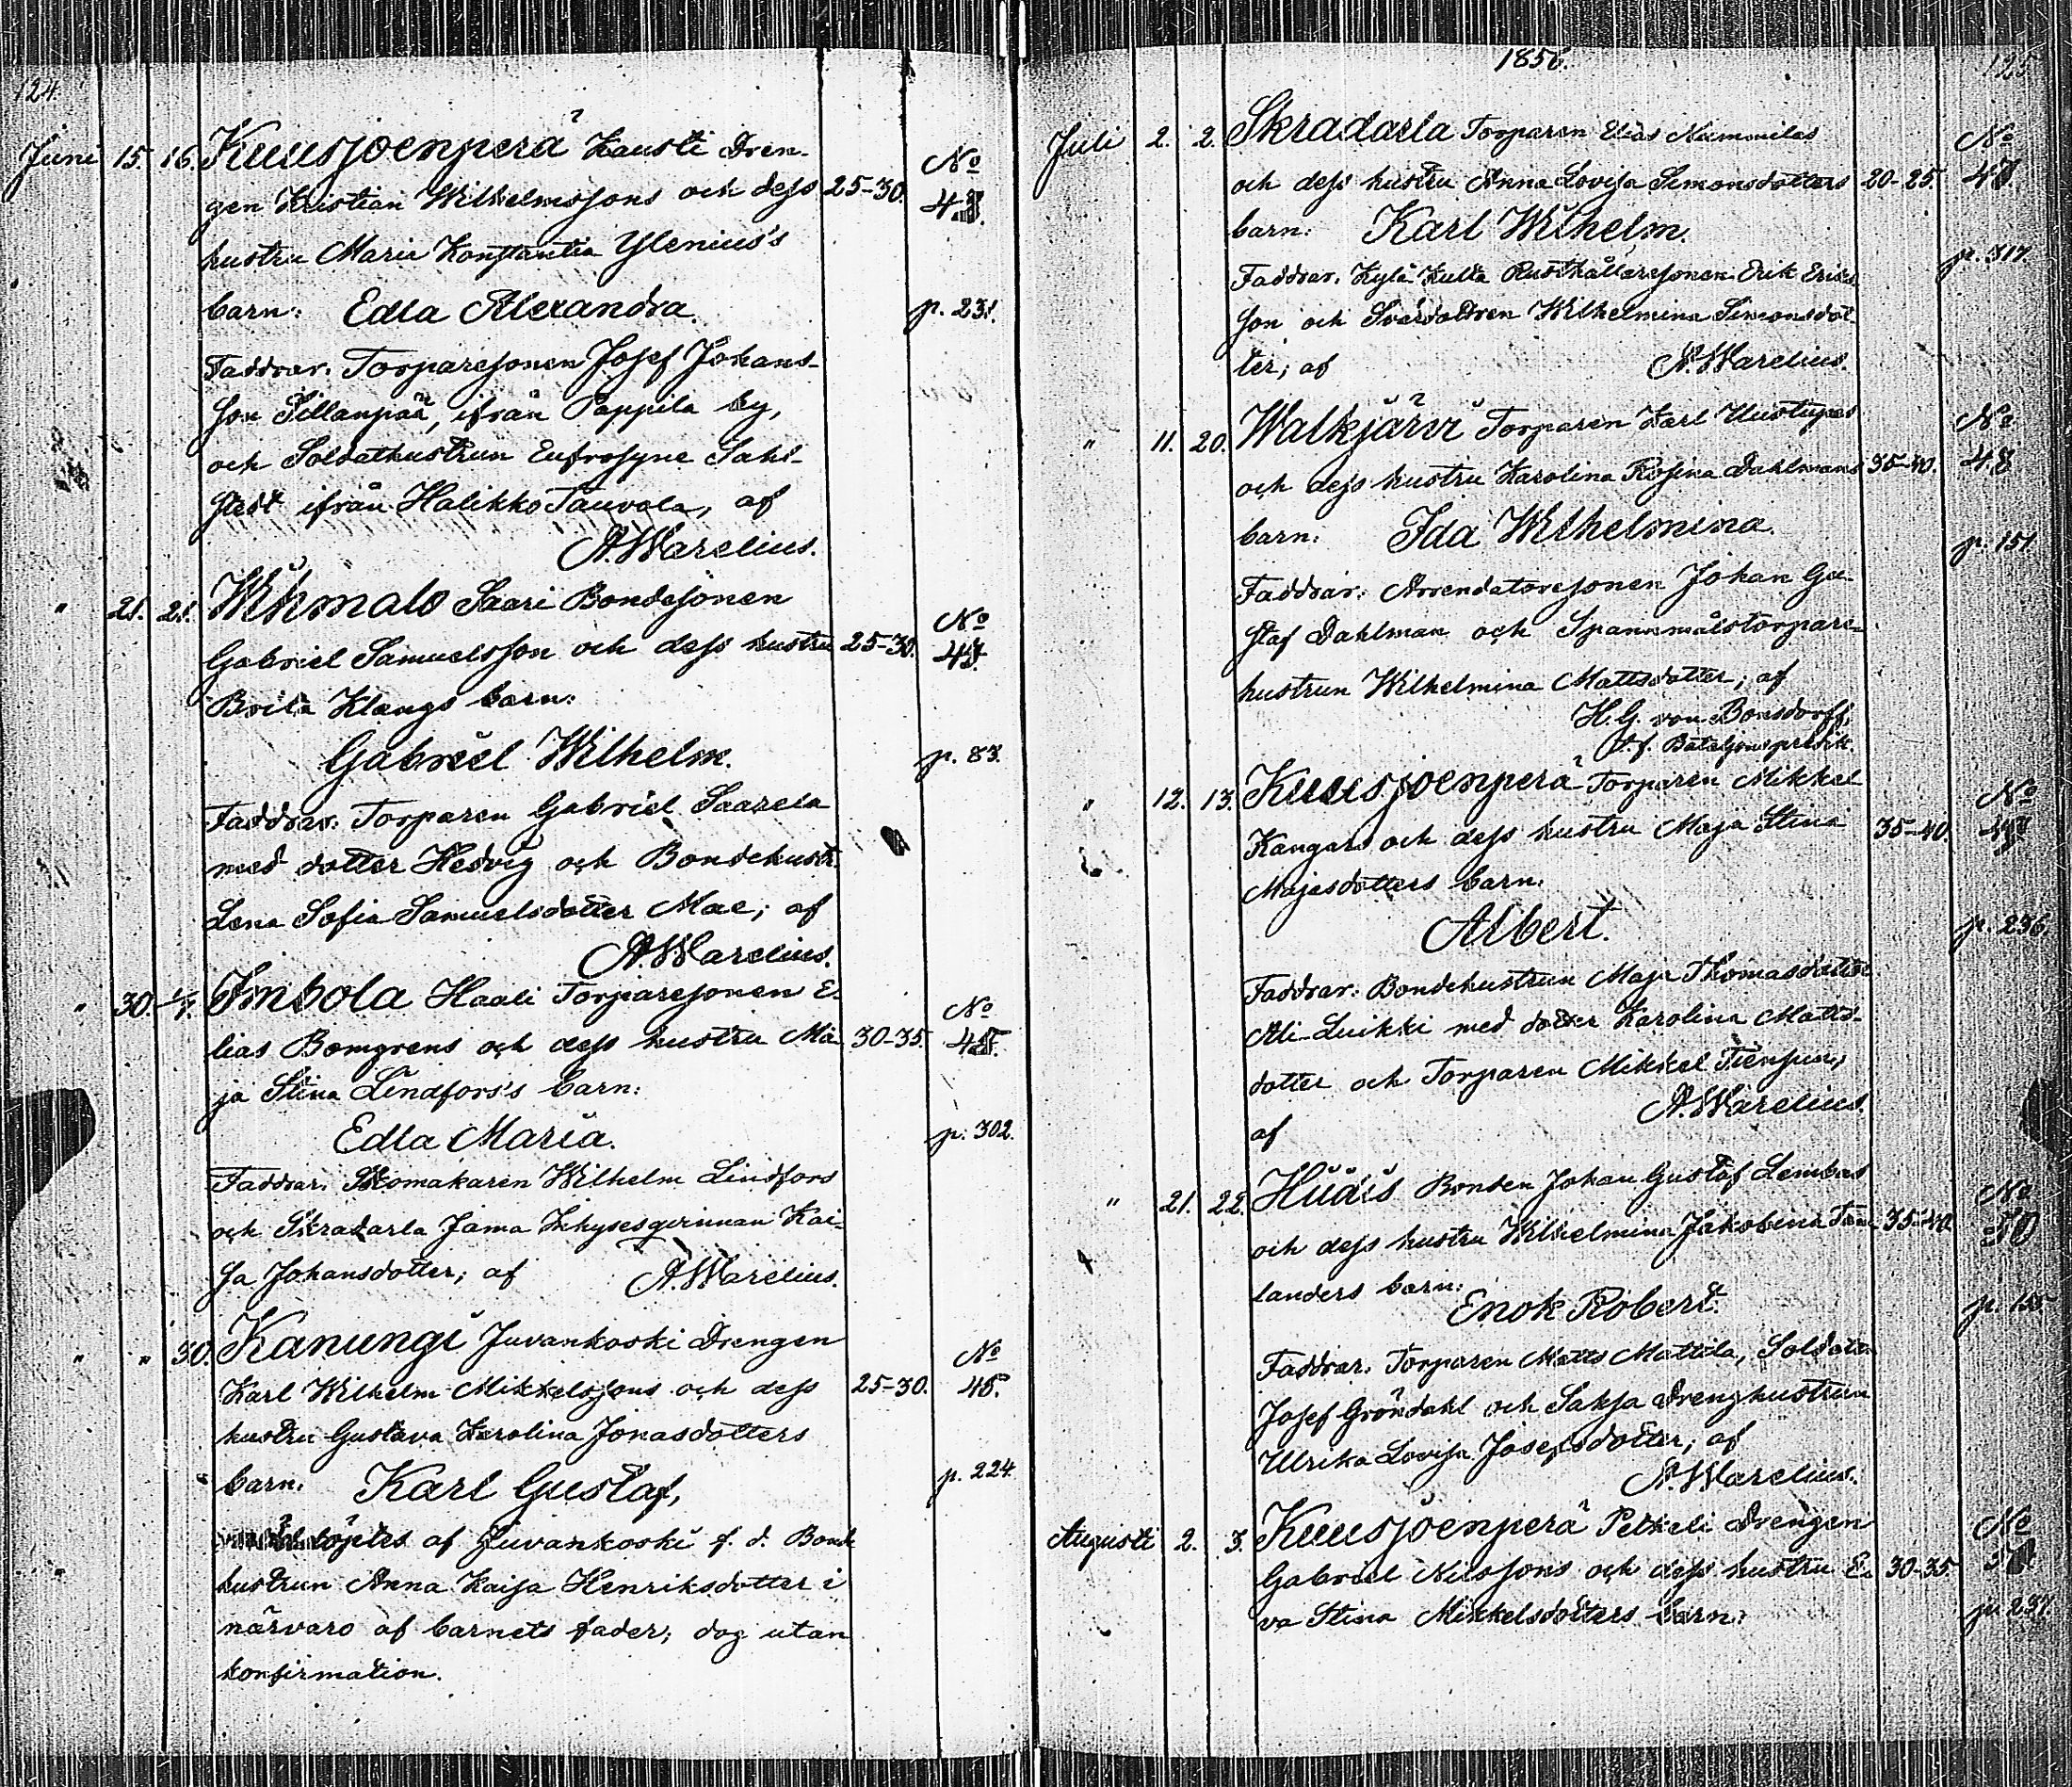 124.
Juni 15. 16. Kuusjoenperä Kausti Dren-
gen Kristian Wilhelmssons och dess 25-30. No 48.
hustru Maria Konstantia Ylenius's
barn: Edla Alexandra. p. 231.
Faddrar. Torparesonen Josef Johans-
son Sillanpää, ifrån Pappila by,
och Soldathustrun Eufrosyne Sahl-
stedt ifrån Halikko Tauvola, af
A. Warelius.
" 21. 21. Wihmalo Saari Bondesonen No
Gabriel Samuelsson och dess hustru 25-30.
Brita Klangs barn:
Gabriel Wilhelm. p. 83.
Faddrar: Torparen Gabriel Saarela
med dotter Hedvig och Bondehustr.
Lena Sofia Samuelsdotter Mae; af
A. Warelius.
" 30. 1/7. Imbola Haali Torparesonen E- No
lias Bomgrens och dess hustru Ma- 30-35.
ja Stina Lindfors's barn:
Edla Maria. p. 302.
Faddrar. Skomakaren Wilhelm Lindfors
och Skradarla Jama Inhysesqvinnan Kai-
sa Johansdotter; af A. Warelius.
" " 30. Kanungi Juvankoski Drengen No
Karl Wilhelm Mikkelssons och dess 25-30. 48.
hustru Gustava Karolina Jonasdotters
barn. Karl Gustaf, p. 224.
döptes af Juvankoski f. d. Bonde
hustrun Anna Kaisa Henriksdotter i
närvaro af barnets fader; dog utan
konfirmation.
1856. 125
Juli 2. 2. Skradarla Torparen Elias Nummilas No
och dess hustru Anna Lovisa Simonsdotters 20-25. 48.
barn: Karl Wilhelm. p. 317
Faddrar. Kylä Kulla Rusthållaresonen Erik Eriks-
son och Svärdottren Wilhelmina Simonsdot-
ter; af A. Warelius.
" 11. 20. Walkjärvi Torparen Karl Uustupas No
och dess hustru Karolina Rosina Dahlmans 35-40. 48
barn: Ida Wilhelmina. p. 151
Faddrar: Arrendatoresonen Johan Gu-
staf Dahlman och Spannmålstorpare-
hustrun Wilhelmina Mattsdotter; af
H. G. von Bonsdorff,
t. f. Bataljonspredik.
" 12. 13. Kuusjoenperä Torparen Mikkel No
Kangars och dess hustru Maja Stina 35-40.
Majasdotters barn.
Albert. p. 236.
Faddrar: Bondehustrun Maja Thomasdotter
Ali-Luikki med dotter Karolina Matts-
dotter och Torparen Mikkel Tiensuu,
af A. Warelius.
" 21. 22. Huāis Bonden Johan Gustaf Lembas No
och dess hustru Wilhelmina Jakobina Tam- 35-40. 50
landers barn:
Enok Robert.
Faddrar. Torparen Matts Mattila, Soldaten
Josef Gröndahl och Saksa Drenghustrun
Ulrika Lovisa Josefsdotter; af
A. Warelius.
Augusti 2. 3. Kuusjoenperä Petkeli Drengen No
Gabriel Nilssons och dess hustru E- 30-35.
va Stina Mikkelsdotters barn: p. 237